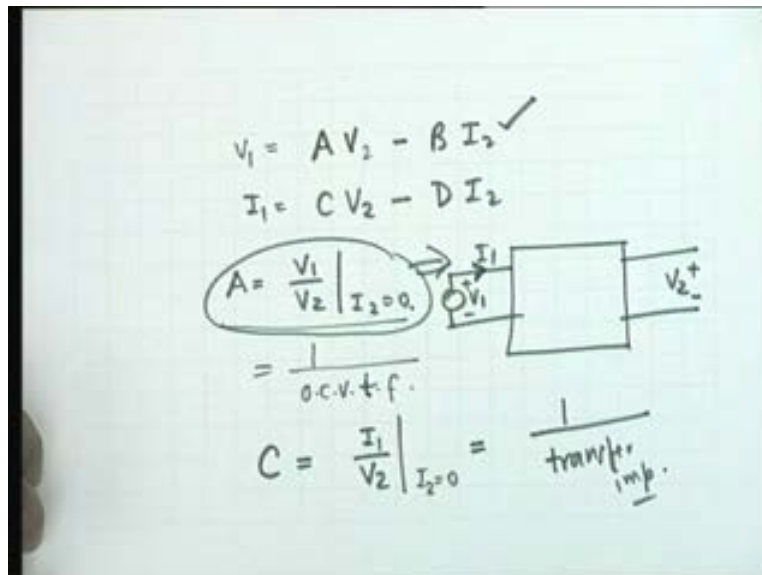 V₁ = A V₂ - B I₂ ✓
I₁ = C V₂ - D I₂
A = V₁/V₂ | I₂=0. ⇒ I₁ + V₁ - V₂ + -
= 1/o.c.v.t.f.
C = I₁/V₂ | I₂=0 = 1/transfer imp.